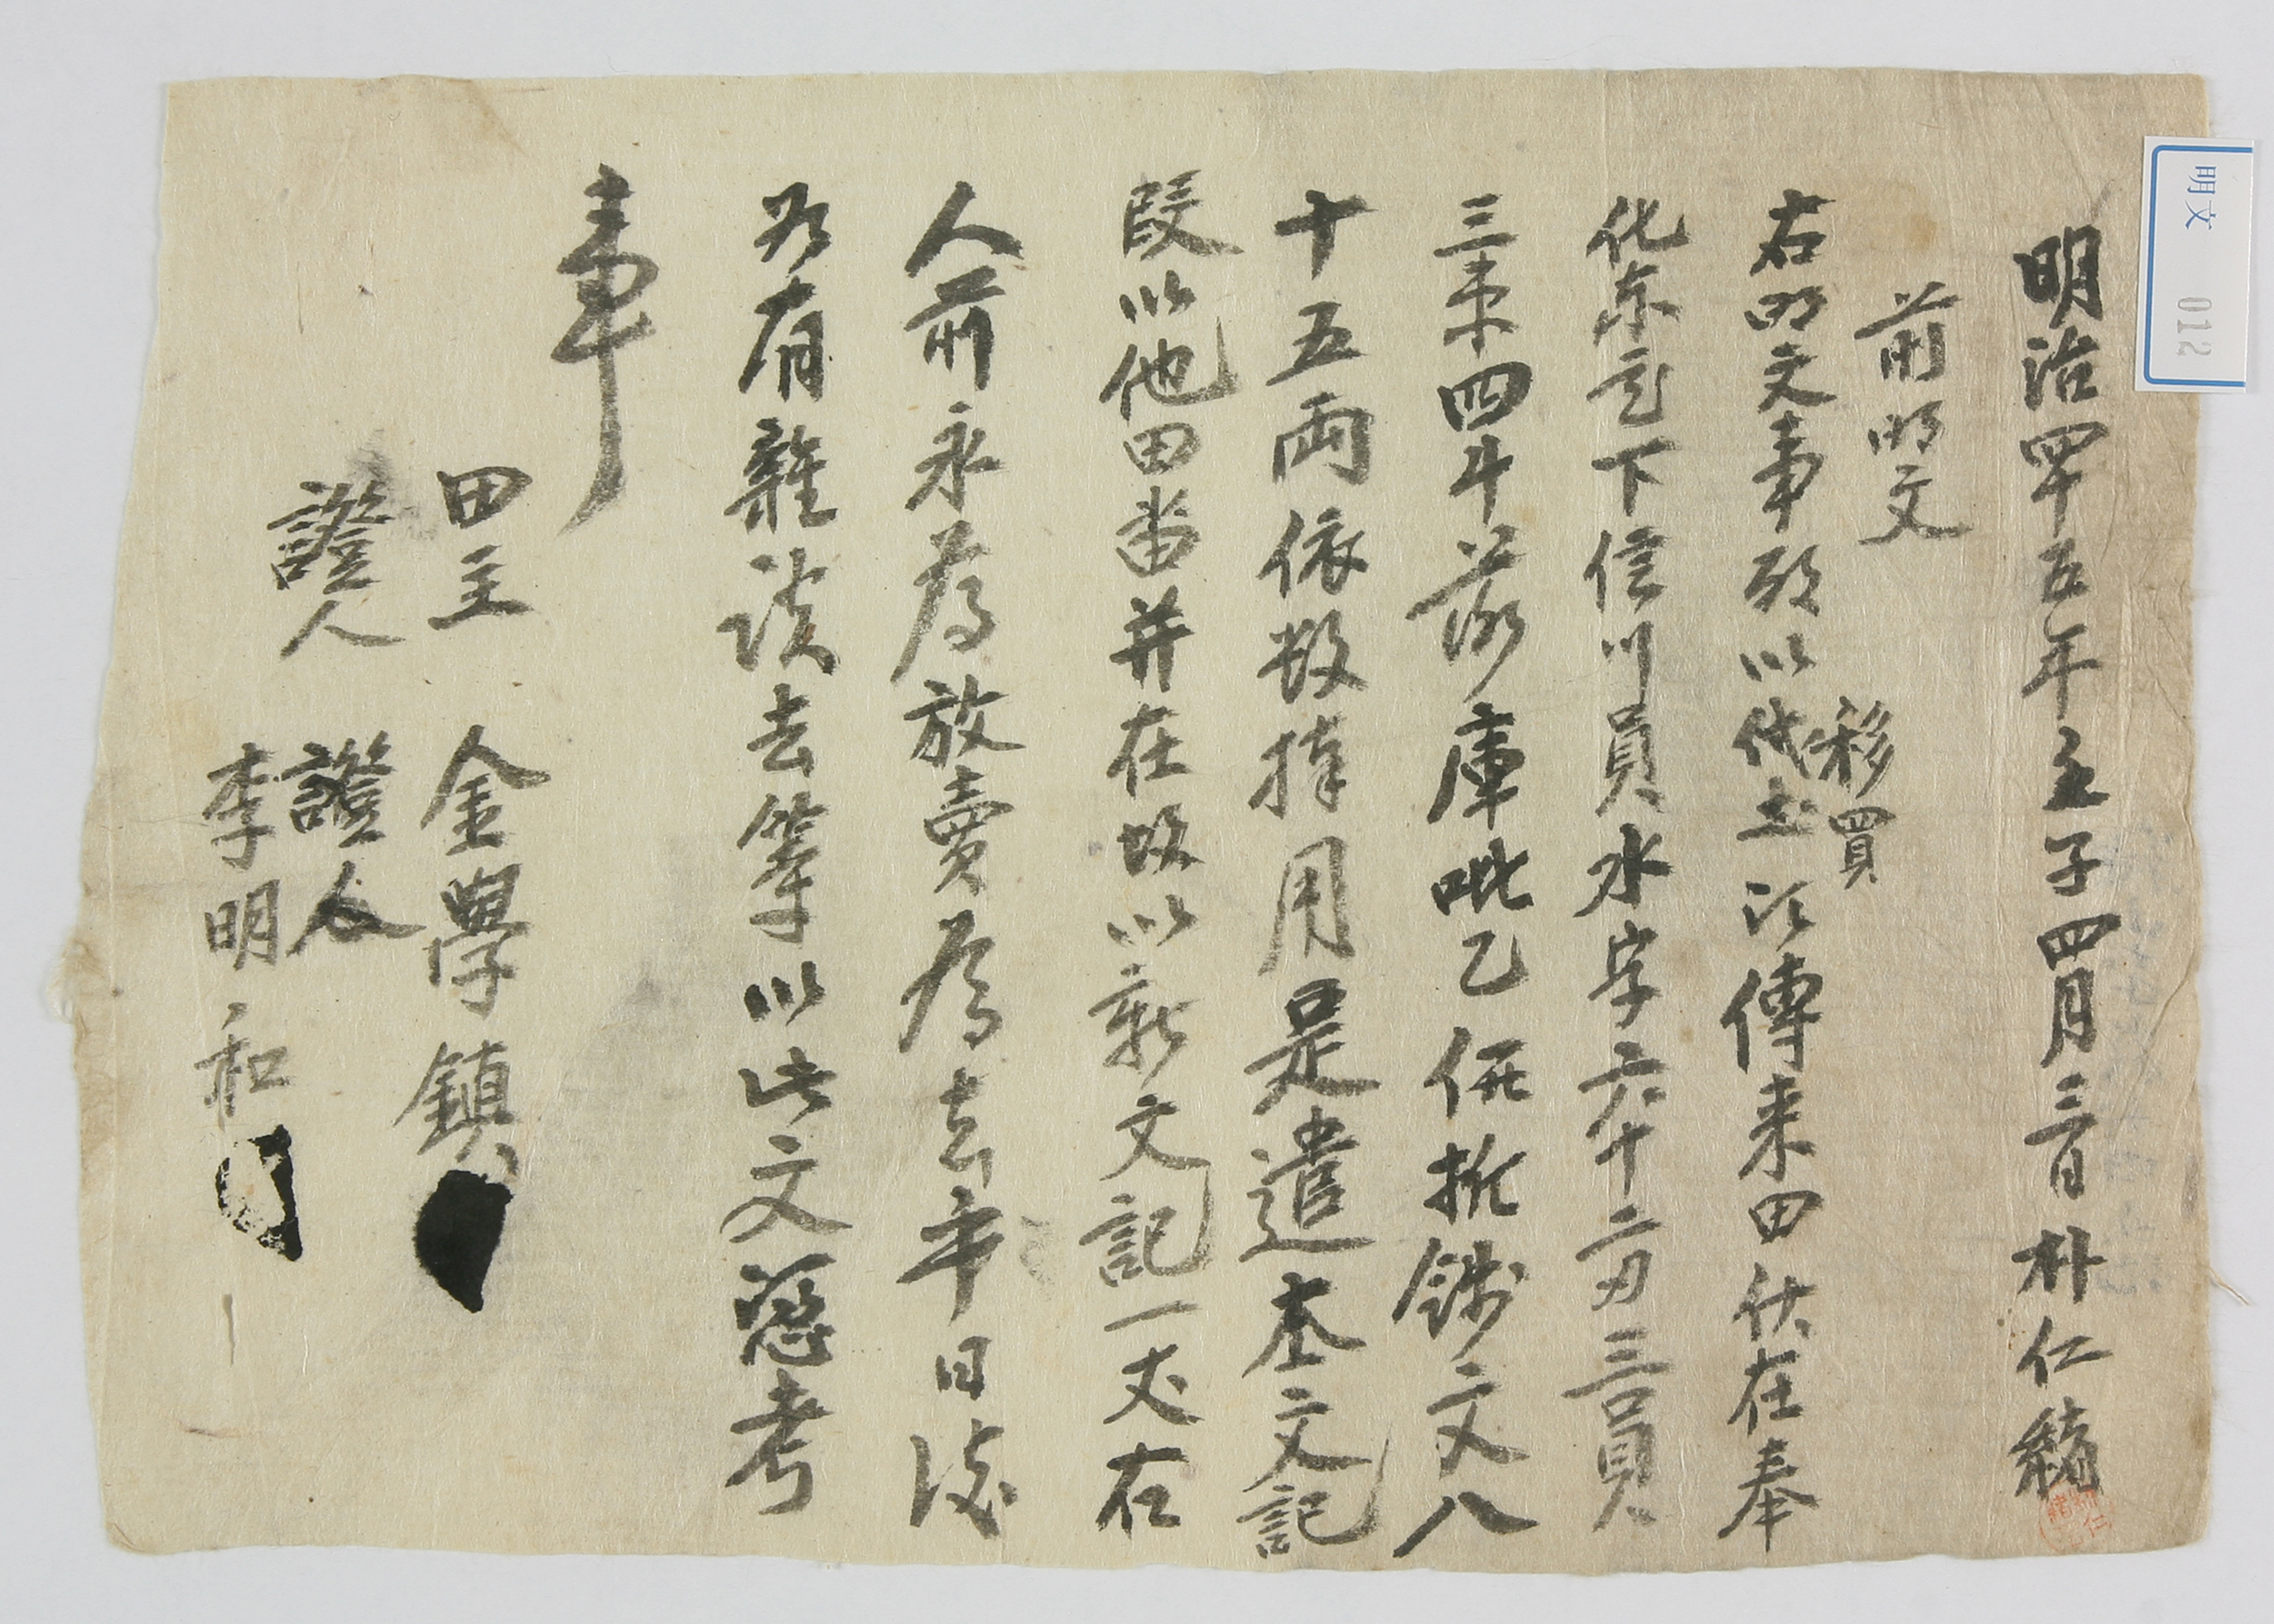 明治四十五年壬子四月三日 朴仁緖
前明文
右明文事段以代土移買次傳来田伏在奉
化東元下信川員水字六十二刃三員
三束四斗落庫叱乙価折錢文八
十五両依数捧用是遣本文記
段以他田畓并在故以新文記一丈右
人前永爲放賣爲去乎日後
若有雜談去等以此文憑考
事
田主 金學鎮
證人 證人
李明和
明文 012